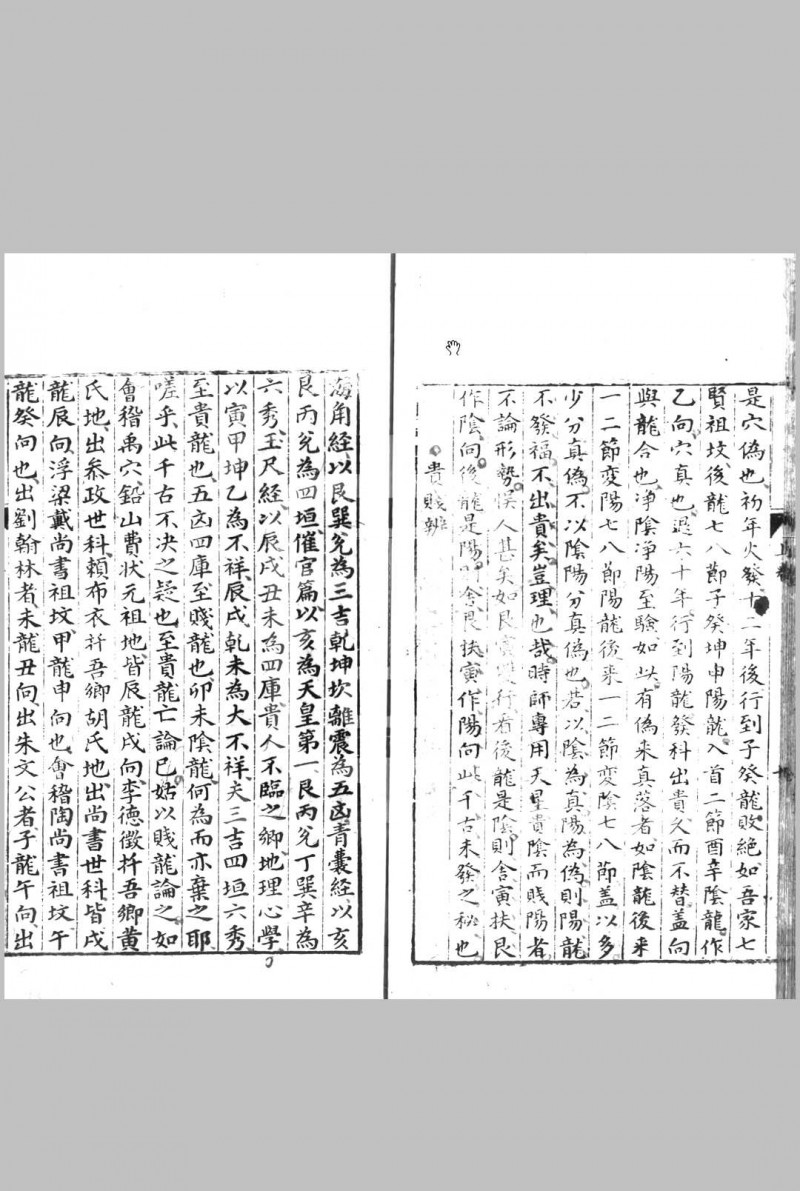 是穴偽也初年火發十二年後行到子癸龍敗絕如吾家七
賢祖坟後龍七八節子癸坤申陽龍入首二節酉辛陰龍作
乙向穴真也退六十年行到陽龍發科出貴久而不替蓋向
與龍合也淨陰淨陽至驗如此有偽來真落者如陰龍後來
一二節变陽七八節陽龍後来一二節变陰七八節蓋以多
少分真偽不以陰陽分真偽也若以陰為真陽為偽則陽龍
不發福不出貴矣豈理也哉時師專用天星貴陰而賤陽者
不論形勢悮人甚矣如艮寅雙行看後龍是陰則含寅扶艮
作陰向後龍是陽則含艮扶寅作陽向此千古未發之秘也
貴賤辨
海角經以艮巽兌為三吉乾坤坎離震為五凶青囊經以亥
艮丙兌為四垣催官篇以亥為天皇第一艮丙兌丁巽辛為
六秀玉尺經以辰戌丑未為四庫貴人不臨之鄉地理心學
以寅甲坤乙為不祥辰戌乾未為大不祥夫三吉四垣六秀
至貴龍也五凶四庫至賤龍也卯未陰龍何為而亦棄之耶
嗟乎此千古不决之疑也至貴龍亡論已姑以賤龍論之如
會稽禹穴鉛山費状元祖地皆辰龍戌向李德徵扦吾鄉黄
氏地出叅政世科賴布衣扦吾鄉胡氏地出尚書世科皆戌
龍辰向浮梁戴尚書祖坟甲龍申向也會稽陶尚書祖坟午
龍癸向也出劉翰林者未龍丑向出朱文公者子龍午向出